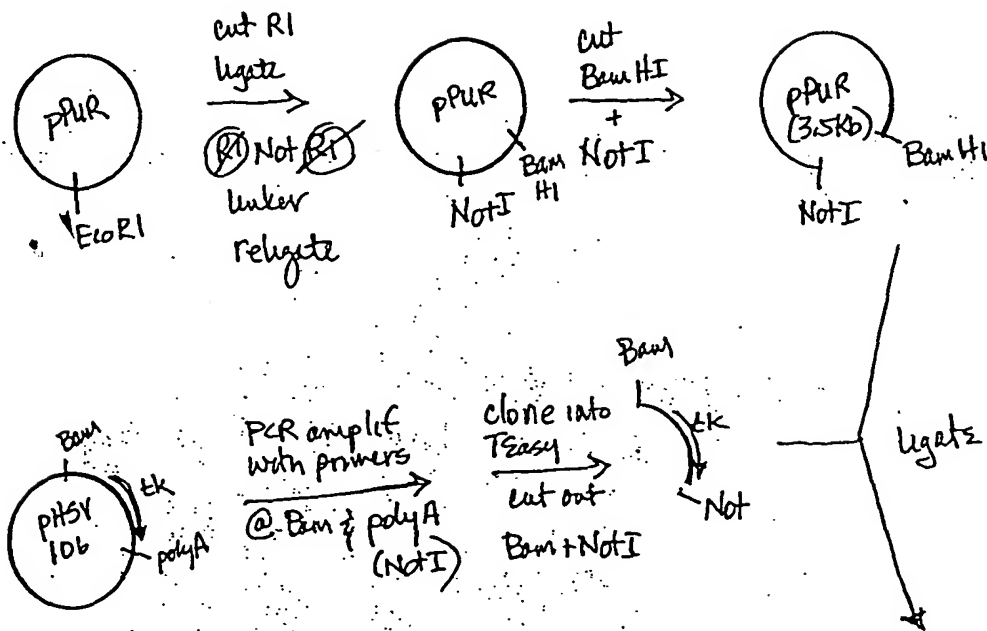 pPUR
EcoRI
cut RI
ligate
RI Not RI
linker
religate
pPUR
Bam
HI
NotI
cut
Bam HI
+
NotI
pPUR
(3.5Kb)
Bam HI
NotI
Bam
tk
pHSV
106
polyA
PCR amplif
with primers
@ Bam & polyA
(NotI)
clone into
TEasy
cut out
Bam + NotI
Bam
tk
Not
ligate